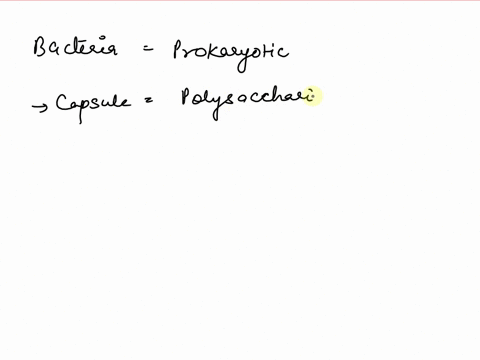 Bacteria = Prokaryotic
→ Capsule = Polysacchari